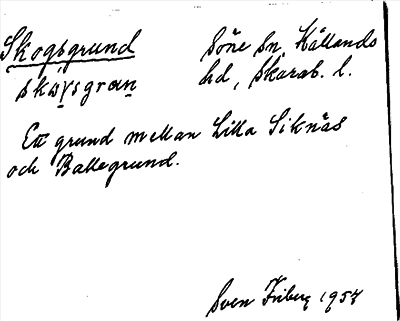 Skogsgrund
Söne sn, Kållands
hd, Skarab. l.
Ett grund mellan Lilla Siknäs
och Ballegrund.
Sven Friberg 1957